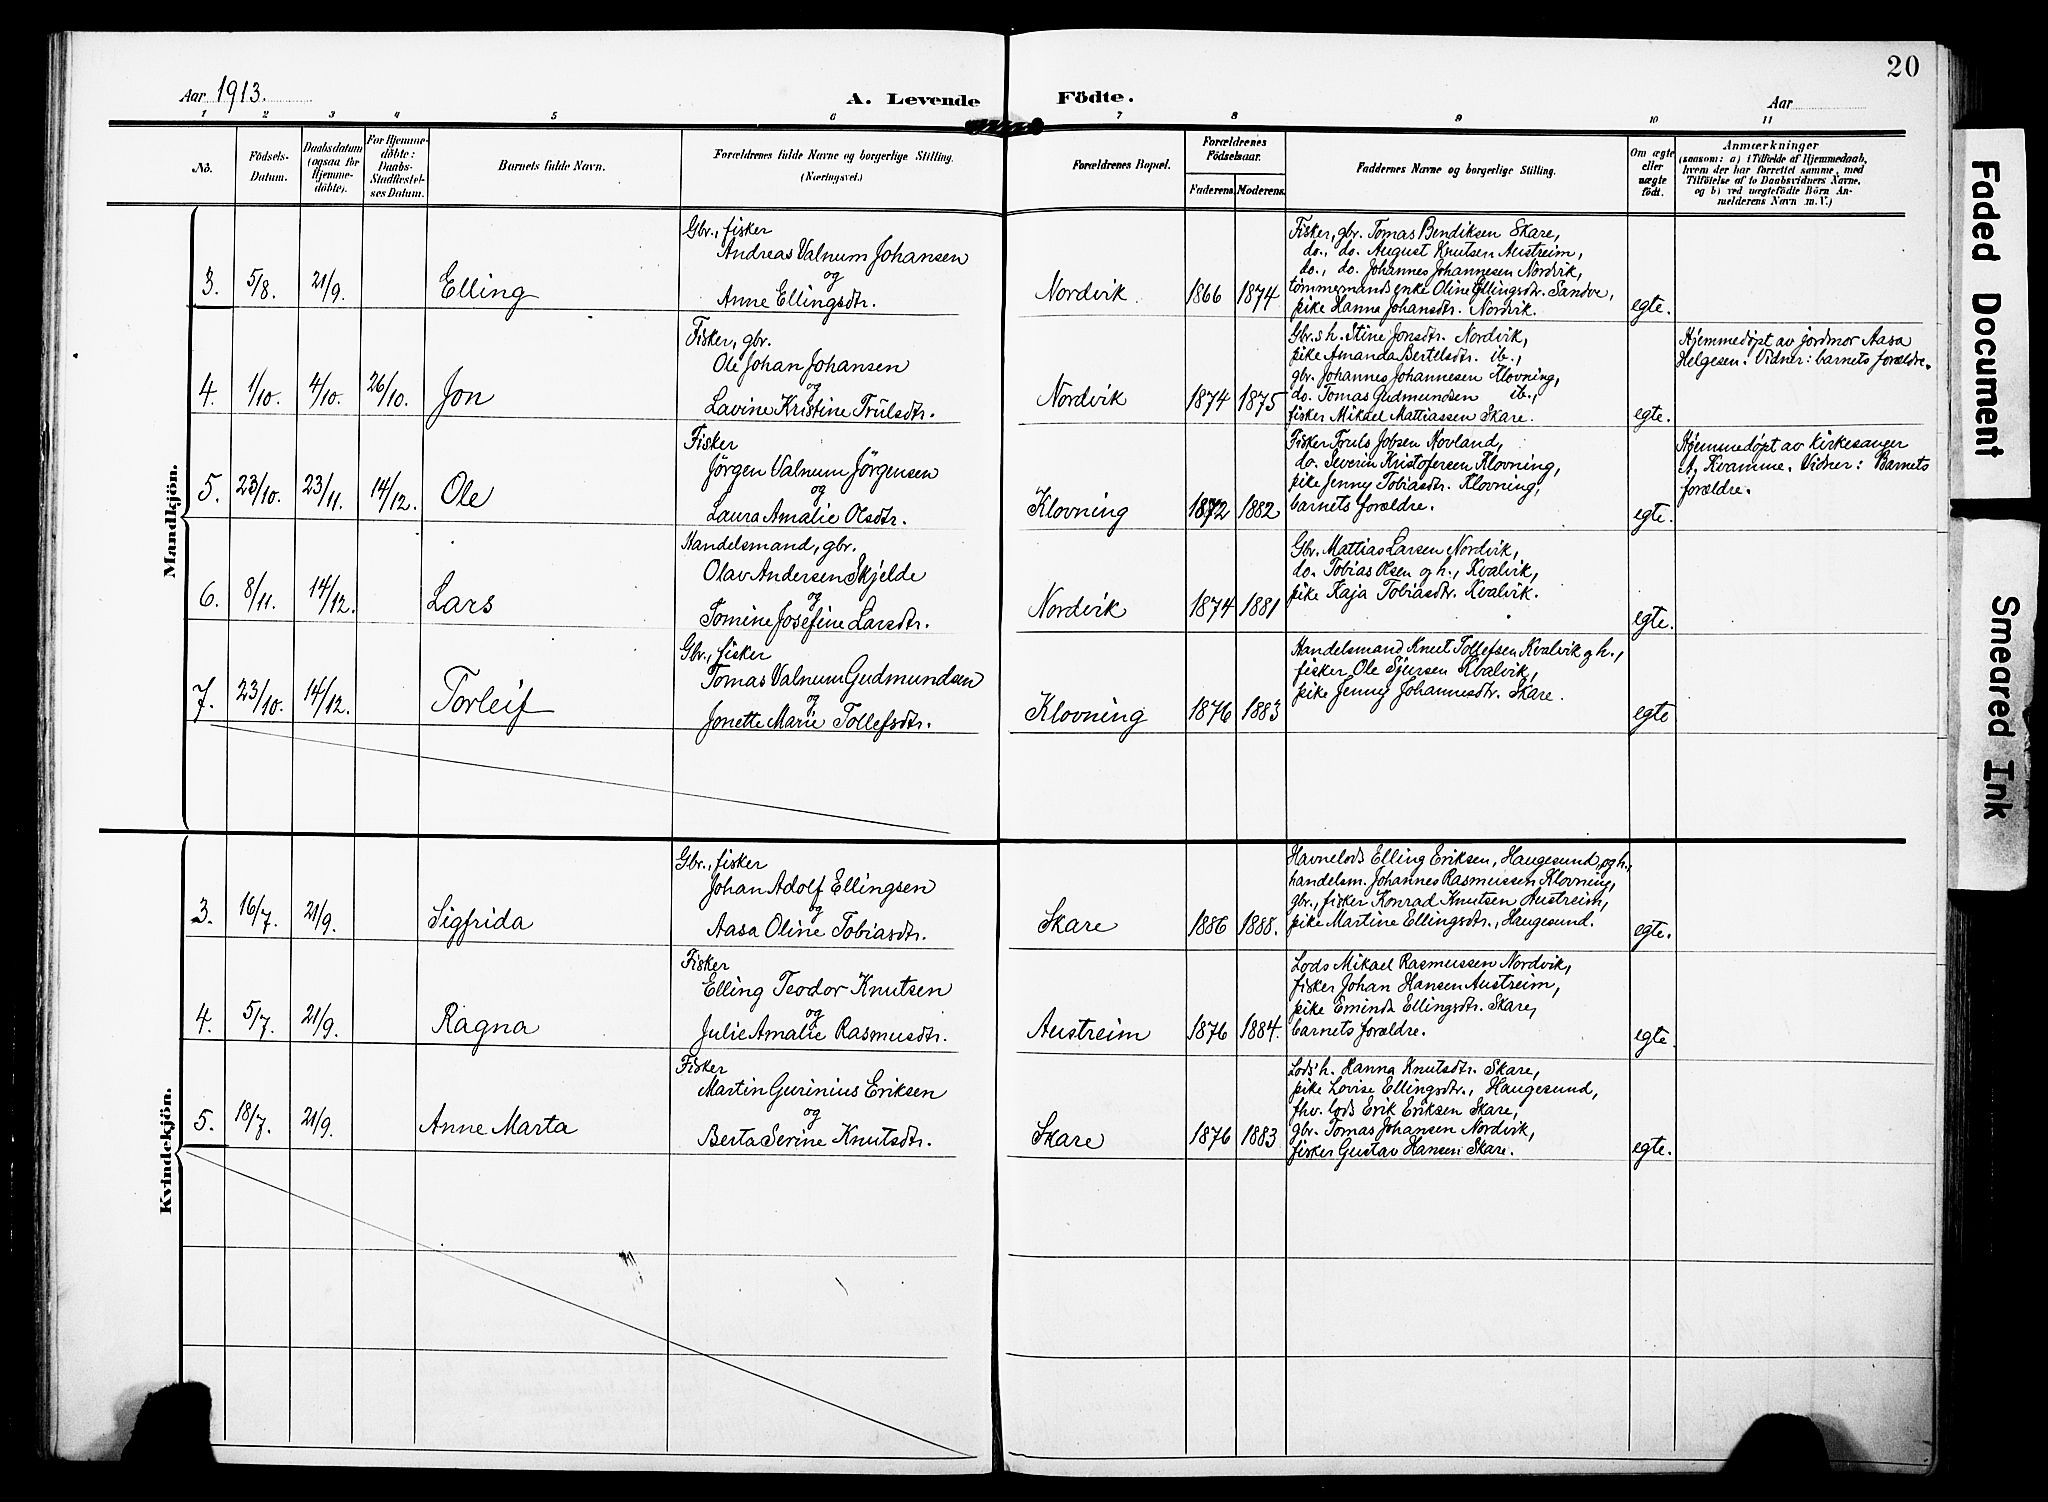 20
Aar 1913.
A. Levende Födte.
Aar
1 2 3 4 5 6 7 8 9 10 11
No.
Födsels-
Datum.
Daabsdatum
(ogsaa for
Hjemme-
döbte).
For Hjemme-
döbte:
Daabs-
Stadfæstel-
ses Datum.
Barnets fulde Navn.
Forældrenes fulde Navne og borgerlige Stilling.
(Næringsvei.)
Forældrenes Bopæl.
Forældrenes
Födselsaar.
Faderens. Moderens.
Faddernes Navne og borgerlige Stilling.
Om ægte
eller
uægte
födt.
Anmærkninger
(saasom: a) i Tilfælde af Hjemmedaab,
hvem der har forrettet samme, med
Tilföielse af to Daabsvidners Navne,
og b) ved uægtefödte Börn An-
melderens Navn m. V.)
Mandkjön.
3. 5/8. 21/9. Elling
Gbr., fisker
Andreas Valnum Johansen
og
Anne Ellingsdtr.
Nordvik. 1866 1874
Fisker, gbr. Tomas Bendiksen Skare,
do., do. August Knutsen Austreim,
do., do. Johannes Johannesen Nordvik,
tömmermands enke Oline Ellingsdtr. Sandve,
pike Hanna Johansdtr. Nordvik.
egte.
4. 1/10. 4/10. 26/10. Jon
Fisker, gbr.
Ole Johan Johansen
og
Lavine Kristine Trulsdtr.
Nordvik 1874 1875
Gbr.s h. Stine Jonsdtr. Nordvik,
pike Amanda Bertelsdtr. ib.,
gbr. Johannes Johannesen Klovning,
do. Tomas Gudmundsen ib.,
fisker Mikael Mattiassen Skare.
egte.
Hjemmedøpt av jordmor Aasa
Helgesen. Vidner: barnets forældre.
5. 23/10. 23/11. 14/12. Ole
Fisker
Jörgen Valnum Jörgensen
og
Laura Amalie Olsdtr.
Klovning 1872 1882
Fisker Truls Jobsen Novland,
do. Severin Kristofersen Klovning,
pike Jenny Tobiasdtr. Klovning,
barnets forældre.
egte.
Hjemmedøpt av kirkesanger
A. Kvamme. Vidner: Barnets
forældre.
6. 8/11. 14/12. Lars
Handelsmand, gbr.
Olav Andersen Skjelde
og
Tomine Josefine Larsdtr.
Nordvik 1874 1881
Gbr. Mattias Larsen Nordvik,
do. Tobias Olsen og h., Kvalvik,
pike Kaja Tobiasdtr. Kvalvik.
egte.
7. 23/10. 14/12. Torleif
Gbr., fisker
Tomas Valnum Gudmundsen
og
Jonette Marie Tollefsdtr.
Klovning 1876 1883
Handelsmand Knut Tollefsen Kvalvik og h.,
fisker Ole Sjursen Kvalvik,
pike Jenny Johannesdtr. Skare.
egte
Kvindekjön.
3. 16/7. 21/9. Sigfrida
Gbr., fisker
Johan Adolf Ellingsen
og
Aasa Oline Tobiasdtr.
Skare 1886 1888.
Havnelods Elling Eriksen, Haugesund, og h.,
handelsm. Johannes Rasmussen Klovning,
gbr., fisker Konrad Knutsen Austreim,
pike Martine Ellingsdtr., Haugesund.
egte.
4. 5/7. 21/9. Ragna
Fisker
Elling Teodor Knutsen
og
Julie Amalie Rasmusdtr.
Austreim 1876 1884.
Lods Mikael Rasmussen Nordvik,
fisker Johan Hansen Austreim,
pike Eminda Ellingsdtr. Skare,
barnets forældre.
egte.
5. 18/7. 21/9. Anne Marta
Fisker
Martin Gurinius Eriksen
og
Berta Serine Knutsdtr.
Skare 1876 1883
Lods' h. Hanna Knutsdtr. Skare,
pike Lovise Ellingsdtr., Haugesund,
fhv. lods Erik Eriksen Skare,
gbr. Tomas Johansen Nordvik,
fisker Gustav Hansen Skare.
egte.
Faded Document
Smeared Ink